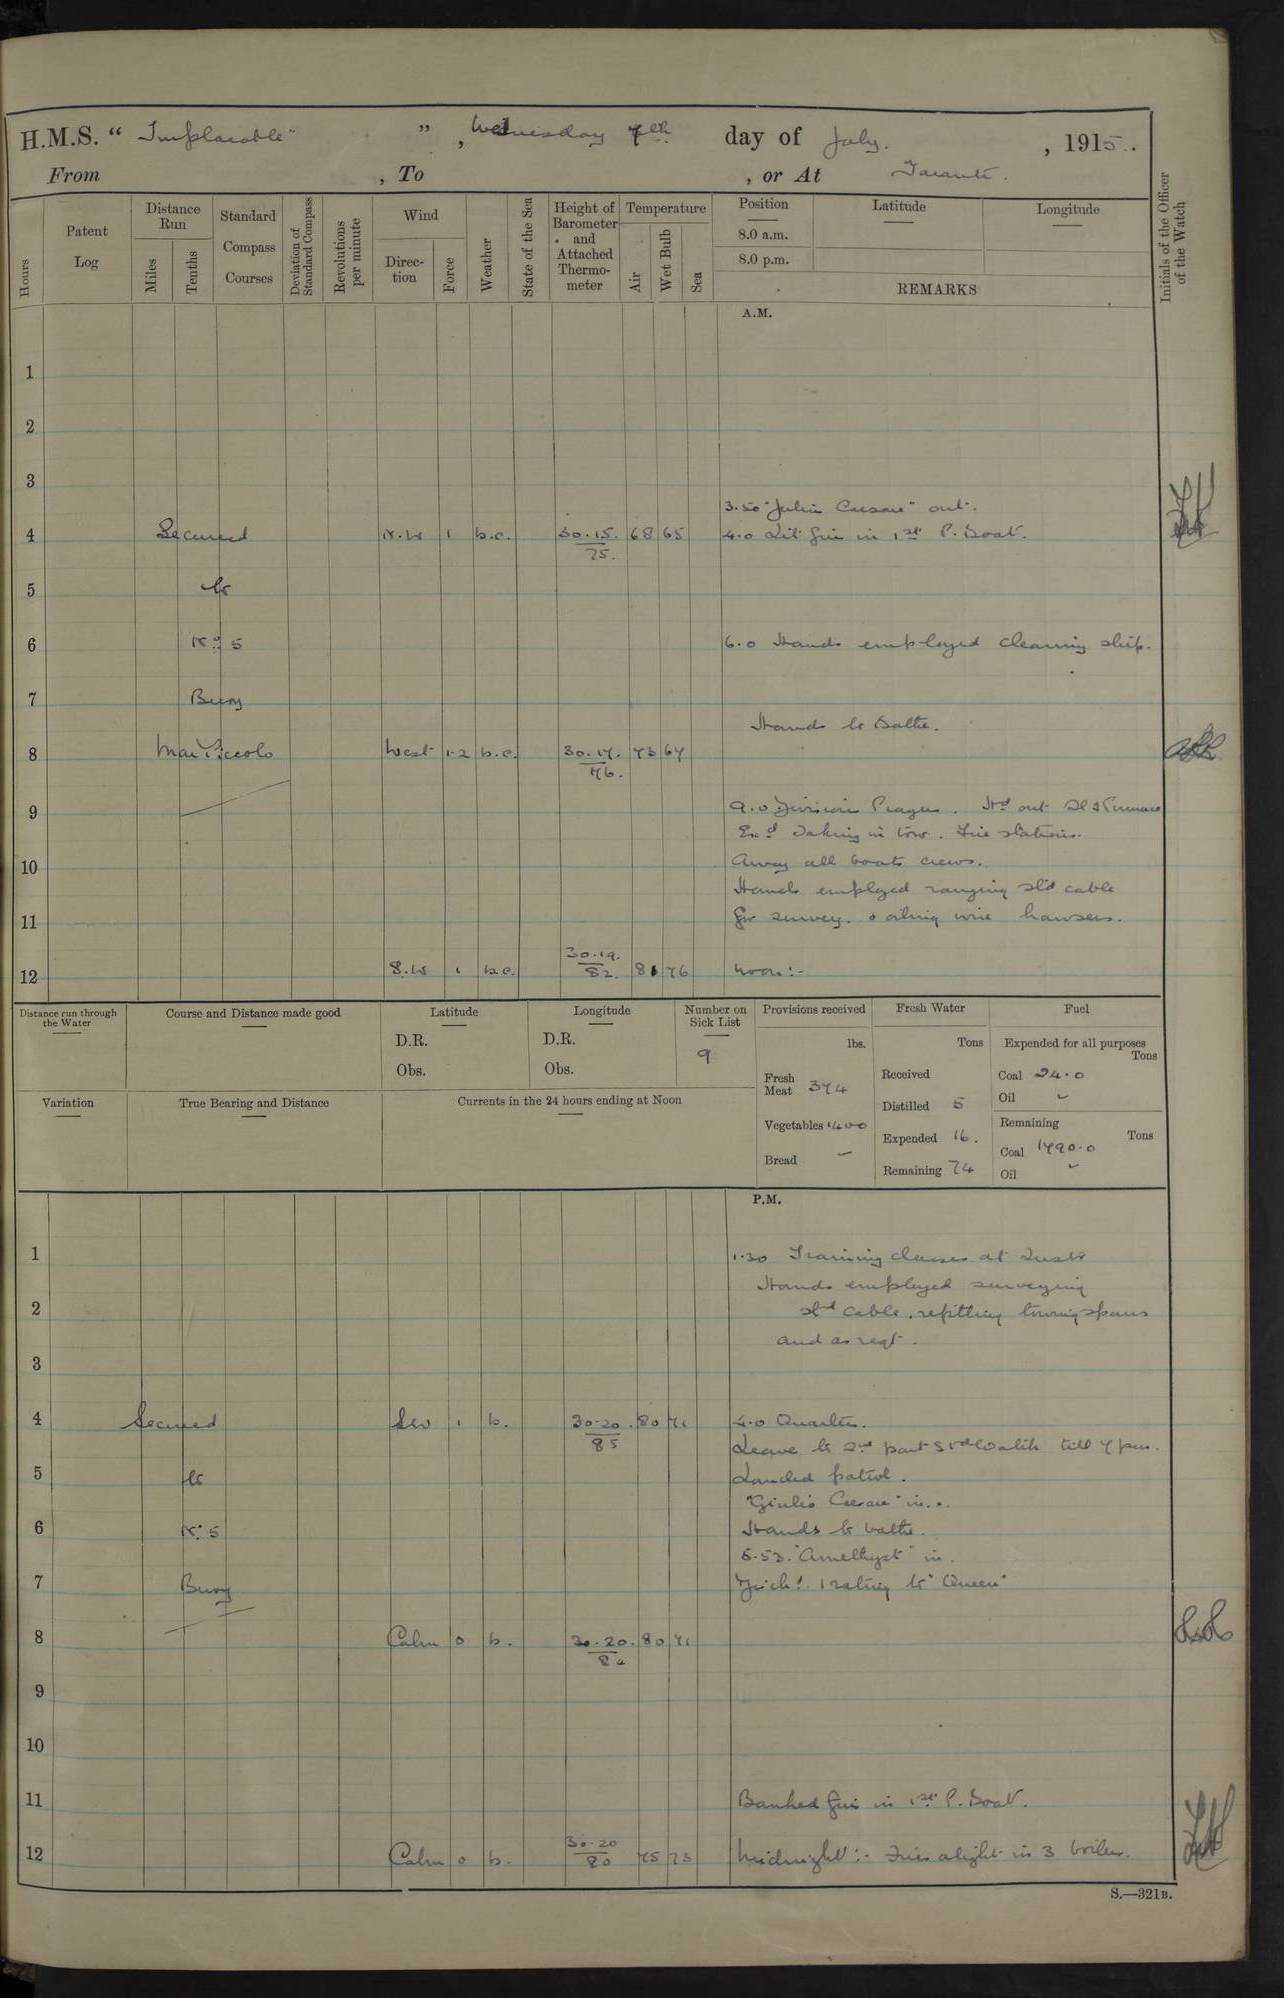 H.M.S. "Implacable", Wednesday 7th day of July, 1915.
From , To , or At Taranto.
Hours
Patent Log
Distance Run
Miles
Tenths
Standard Compass Courses
Deviation of Standard Compass
Revolutions per minute
Wind
Direction
Force
Weather
State of the Sea
Height of Barometer and Attached Thermometer
Temperature
Air
Wet Bulb
Sea
Position
Latitude
Longitude
8.0 a.m.
8.0 p.m.
REMARKS
Initials of the Officer of the Watch
A.M.
1
2
3
3.50 "Julio Cesare" out.
4 Secured N.W 1 b.c. 30.15. 75. 68 65 4.0 Lit fire in 1st P. Boat.
5 to
6 No 5 6.0 Hands employed cleaning ship.
7 Buoy
Hands to Bathe.
8 Mar Piccolo West 1.2 b.c. 30.17. 76. 73 67
9 9.0 Division Prayers. Hd out Sl & Pinnace
Exd Taking in tow. Fire stations.
10 Away all boats crews.
Hands employed ranging std cable
11 for survey. & oiling wire hawsers.
12 S.W 1 b.c. 30.19. 82. 81 76 Noon:-
Distance run through the Water
Course and Distance made good
Latitude
D.R.
Obs.
Longitude
D.R.
Obs.
Number on Sick List
9
Provisions received
lbs.
Fresh Meat 374
Vegetables 1400
Bread -
Fresh Water
Tons
Received
Distilled 5
Expended 16.
Remaining 74
Fuel
Expended for all purposes
Tons
Coal 24.0
Oil -
Remaining
Tons
Coal 1790.0
Oil -
Variation
True Bearing and Distance
Currents in the 24 hours ending at Noon
P.M.
1 1.30 Training classes at Instr
Hands employed surveying
2 std cable, refitting towing spans
and as reqt.
3
4 Secured SW 1 b. 30.20. 85 80 71 4.0 Quarters.
Leave to 2nd part Std Watch till 7 pm.
5 to Landed patrol.
"Giulio Cesare" in.
6 No 5 Hands to bathe.
6.53. "Amethyst" in.
7 Buoy Disch'd. 1 rating to "Queen"
8 Calm 0 b. 30.20. 80 71
9
10
11 Banked fire in 1st P. Boat.
12 Calm 0 b. 30.20 80 75 73 Midnight:- Fires alight in 3 boilers.
S.—321B.